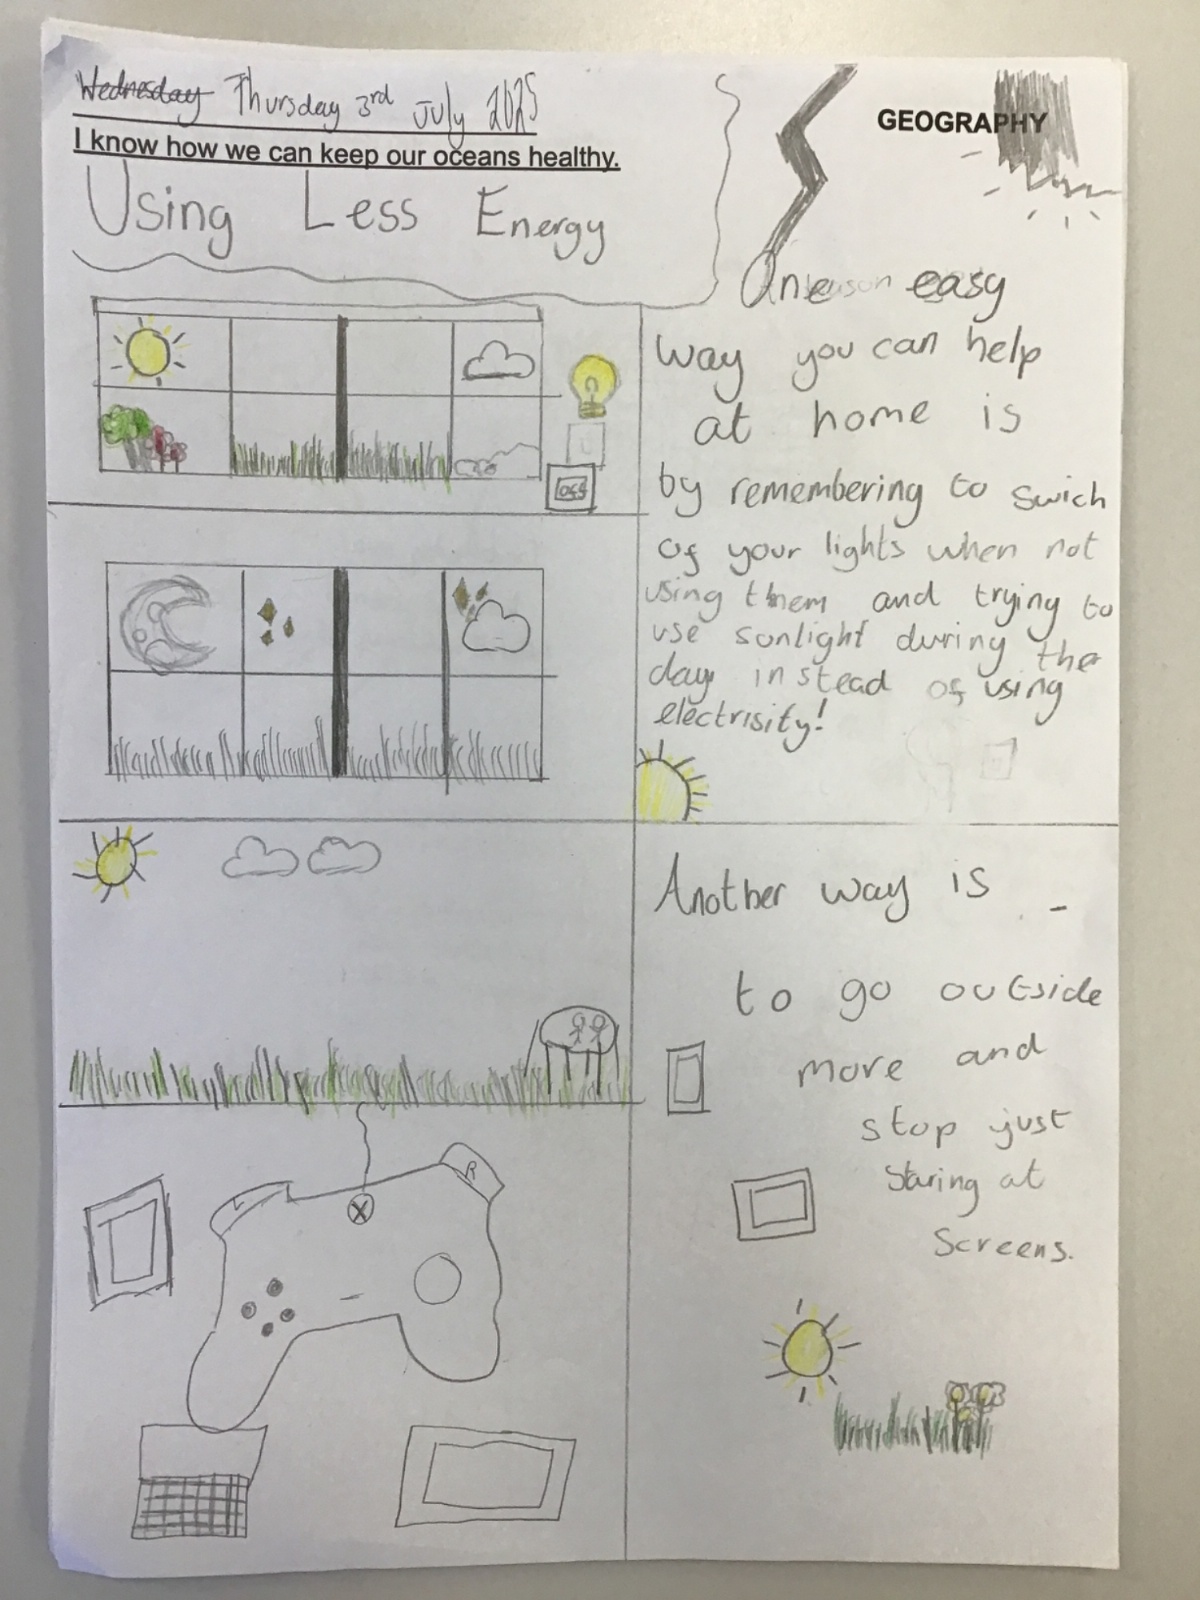 Wednesday Thursday 3rd July 2025
GEOGRAPHY
I know how we can keep our oceans healthy.
Using Less Energy
One easy
way you can help
at home is
by remembering to swich
of your lights when not
using them and trying to
use sunlight during the
day instead of using
electrisity!
off
Another way is
to go outside
more and
stop just
staring at
screens.
L
R
X